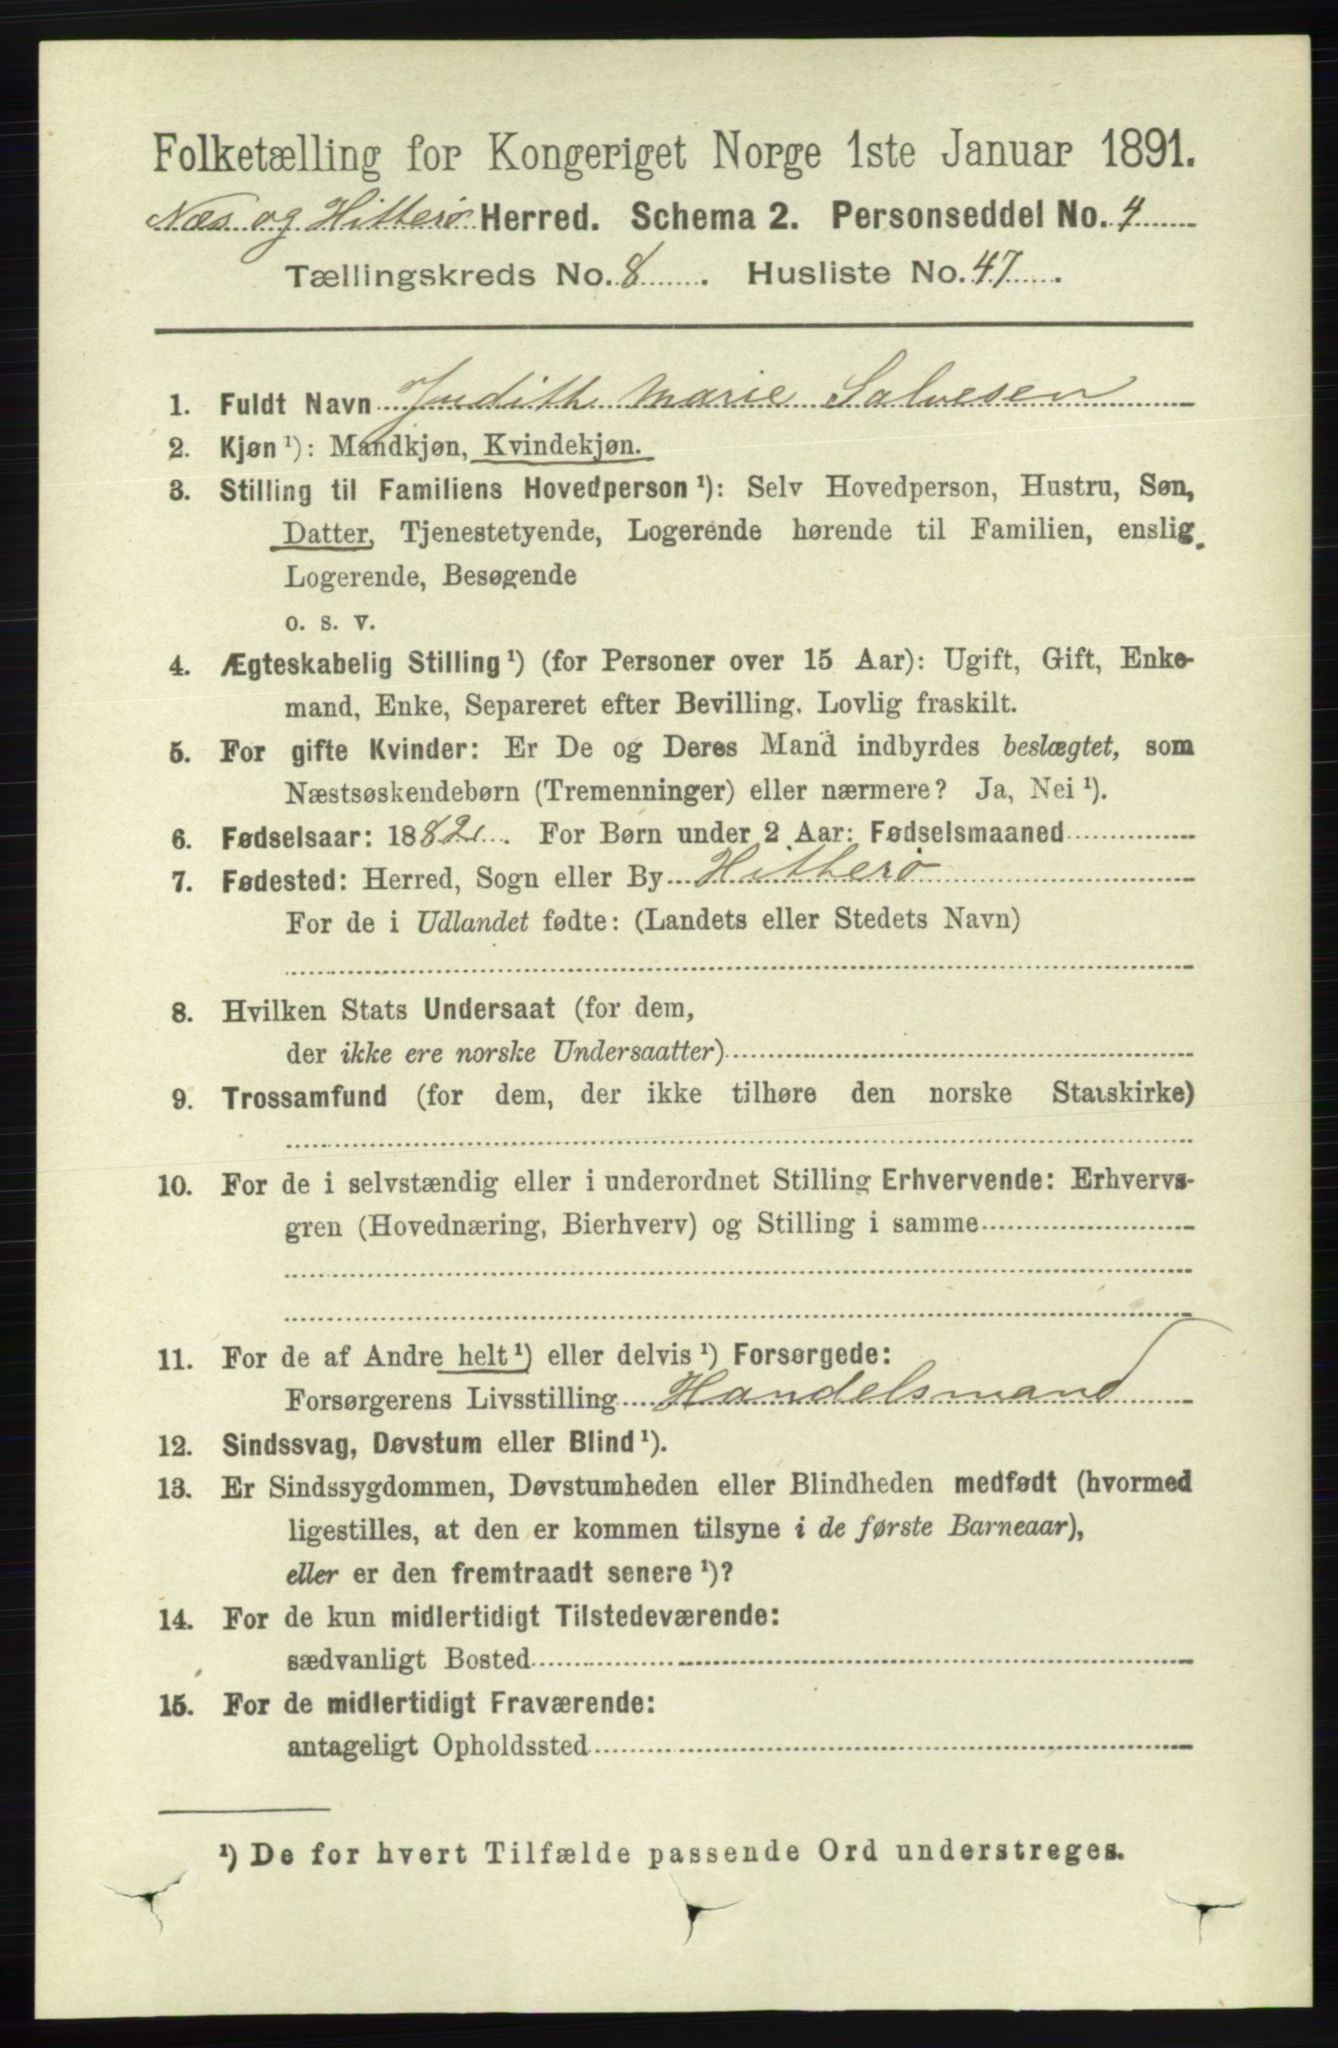 Folketælling for Kongeriget Norge 1ste Januar 1891.
Næs og Hitterø Herred. Schema 2. Personseddel No. 4
Tællingskreds No. 8. Husliste No. 47.
1. Fuldt Navn Judith Marie Salvesen
2. Kjøn ¹): Mandkjøn, Kvindekjøn.
3. Stilling til Familiens Hovedperson ¹): Selv Hovedperson, Hustru, Søn,
Datter, Tjenestetyende, Logerende hørende til Familien, enslig
Logerende, Besøgende
o. s. v.
4. Ægteskabelig Stilling ¹) (for Personer over 15 Aar): Ugift, Gift, Enke-
mand, Enke, Separeret efter Bevilling. Lovlig fraskilt.
5. For gifte Kvinder: Er De og Deres Mand indbyrdes beslægtet, som
Næstsøskendebørn (Tremenninger) eller nærmere? Ja, Nei ¹).
6. Fødselsaar: 1882. For Børn under 2 Aar: Fødselsmaaned
7. Fødested: Herred, Sogn eller By Hitterø
For de i Udlandet fødte: (Landets eller Stedets Navn)
8. Hvilken Stats Undersaat (for dem,
der ikke ere norske Undersaatter)
9. Trossamfund (for dem, der ikke tilhøre den norske Statskirke)
10. For de i selvstændig eller i underordnet Stilling Erhvervende: Erhvervs-
gren (Hovednæring, Bierhverv) og Stilling i samme
11. For de af Andre helt ¹) eller delvis ¹) Forsørgede:
Forsørgerens Livsstilling Handelsmand
12. Sindssvag, Døvstum eller Blind ¹).
13. Er Sindssygdommen, Døvstumheden eller Blindheden medfødt (hvormed
ligestilles, at den er kommen tilsyne i de første Barneaar),
eller er den fremtraadt senere ¹)?
14. For de kun midlertidigt Tilstedeværende:
sædvanligt Bosted
15. For de midlertidigt Fraværende:
antageligt Opholdssted
¹) De for hvert Tilfælde passende Ord understreges.